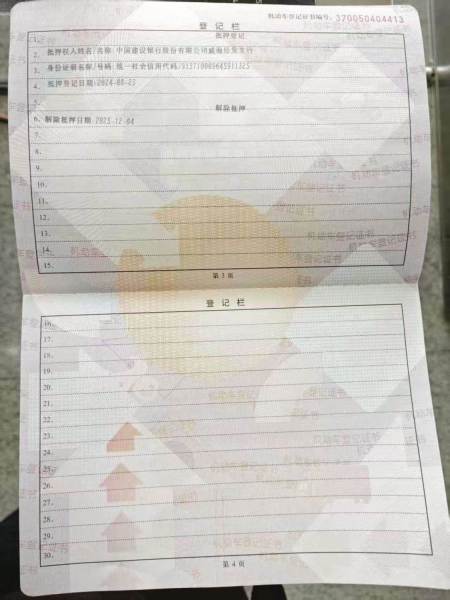 机动车登记证书编号：370050404413
登记栏
1. 抵押登记
2. 抵押权人姓名/名称:中国建设银行股份有限公司威海经发支行
3. 身份证明名称/号码:统一社会信用代码/
4. 抵押登记日期:2024-08-23
5. 解除抵押
6. 解除抵押日期:2025-12-04
7.
8.
9.
10.
11.
12.
13.
14.
15.
第 3 页
登记栏
16.
17.
18.
19.
20.
21.
22.
23.
24.
25.
26.
27.
28.
29.
30.
第 4 页